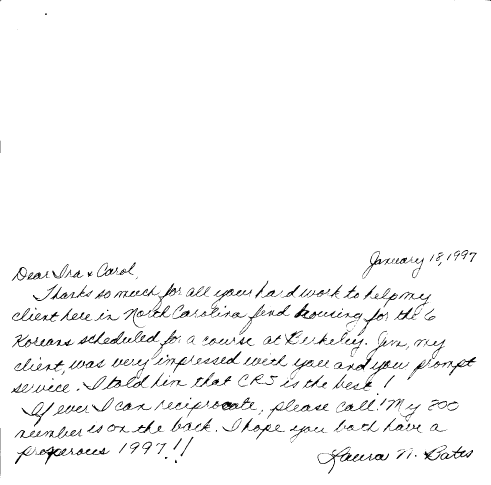 January 18, 1997
Dear Ira & Carol,
Thanks so much for all your hard work to help my
client here in North Carolina find housing for the 6
Koreans scheduled for a course at Berkeley. Jim, my
client, was very impressed with you and you prompt
service. I told him that CRS is the best!
If ever I can reciprocate, please call! My 800
number is on the back. I hope you both have a
prosperous 1997!!
Laura N. Bates